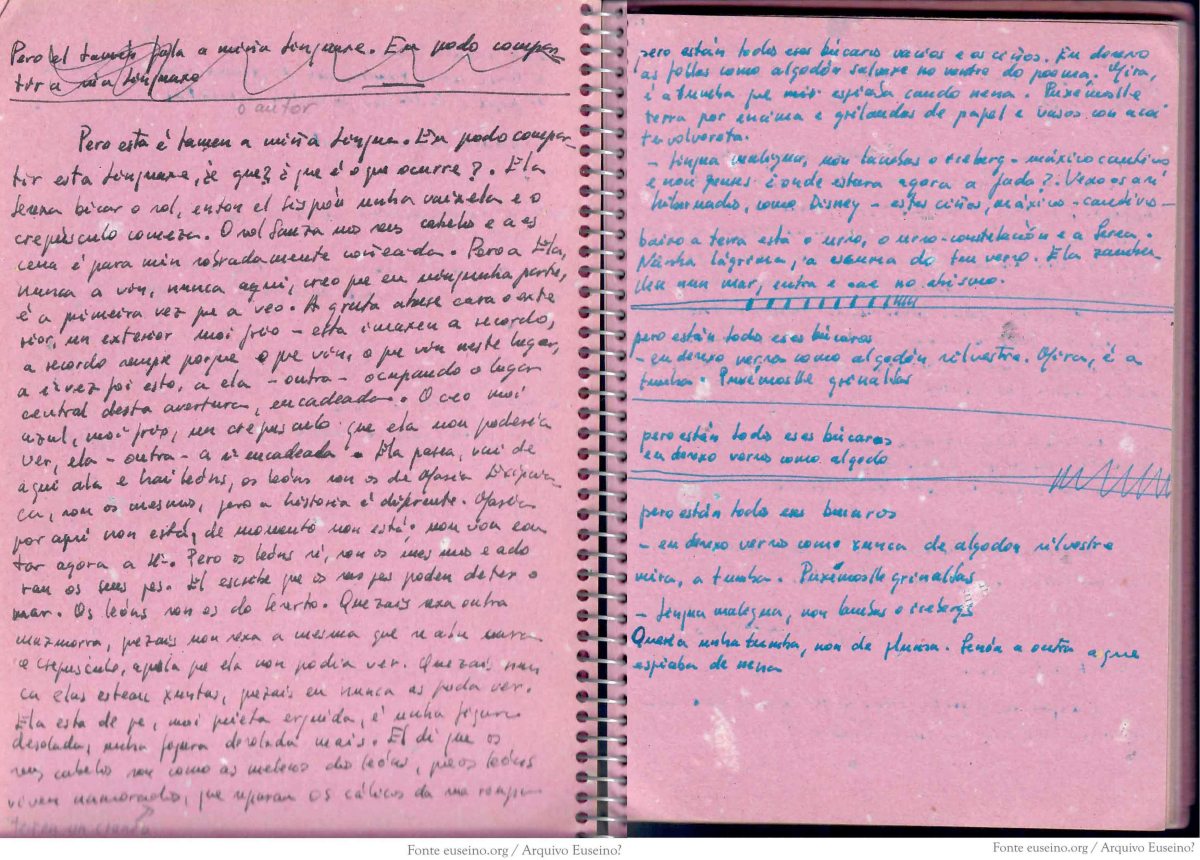 Pero el tamen fala a miña linguaxe. Eu podo compar
tir a súa linguaxe
o autor
Pero esta é tamen a miña lingua. Eu podo compar-
tir esta linguaxe, é que? é que é o que ocurre?. Ela
desexa bicar o sol, enton el dispón unha vaixela e o
crepúsculo comeza. O sol lanza nos seus cabelos e a es
cena é para min sobradamente coñecida. Pero a Ela,
nunca a vin, nunca aquí, creo que en ningunha parte,
é a primeira vez que a vexo. A gruta abrese cara o exte
rior, un exterior moi frio - esta imaxen a recordo,
a recordo sempre porque o que vin, o que vin neste lugar,
a vez foi esto, a ela - outra - ocupando o lugar
central desta avertura, encadeada. O ceo moi
azul, moi frio, un crepusculo que ela non poderia
ver, ela - outra - a encadeada. Ela pasea, vai de
aqui ala e hai leóns, os leóns son os de Maria Exipcia
ca, son os mesmos, pero a historia é diferente. Maria
por aquí non está, de momento non está, non vou con
tar agora a Pero os leóns si, son os mesmos e ado
ran os seus pes. El escribe que os seus pes poden deter o
mar. Os leóns son os do deserto. Quezais sexa outra
mazmorra, quezais non sexa a mesma que
o crepusculo, aquela que ela non podia ver. Quezais nun
ca elas estean xuntas, quezais eu nunca as poda ver.
Ela esta de pe, moi quieta erguida, é unha figura
desolada, unha figura desolada mais. El di que os
seus cabelos son como as melenas dos leóns, que os leóns
viven namorados, que separan os cálices da
pero están todos eses búcaros vacios e os ciños. Eu deserto
as follas como algodón salvaxe no ventre do poema. Mira,
é a tumba que mir espiaba cando nena. Puxémoslle
terra por encima e grilandas de papel e vasos con
- lingua maligna, non lambas o iceberg - máxico cautivo
e non penses é onde estara agora a fada?. Vexo os
hibernados, como Disney - estes ciños, máxico-cautivo -
baixo a terra está o urso, o urso-constelación e a Serea.
Nunha lágrima, a escuma do teu verso. Ela
nun mar, entra e cae no abismo.
pero están todos eses búcaros
- eu deixo versos como algodón silvestre. Mira, é a
tumba. Puxémoslle grinaldas
pero están todos eses búcaros
eu deixo versos como algodo
pero están todos eses bucaros
- eu deixo versos como xunca de algodón silvestre
mira, a tumba. Puxémoslle grinaldas
- lingua maligna, non lambas o icebergs
Queria unha tumba, non de pluma. Senón a outra a que
espiaba de nena
Fonte euseino.org / Arquivo Euseino?
Fonte euseino.org / Arquivo Euseino?